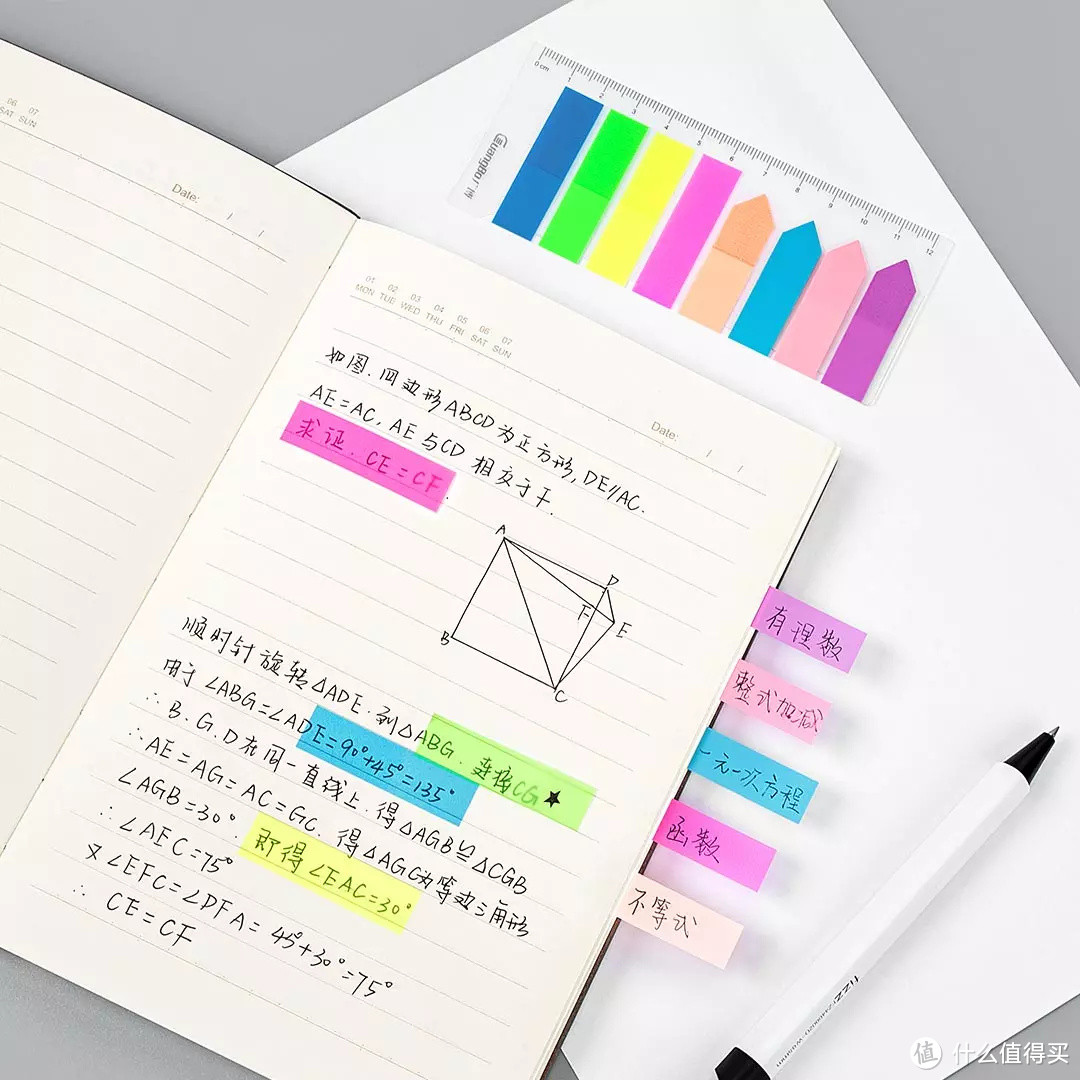 06 07
SAT SUN
Date: / /
01 02 03 04 05 06 07
MON TUE WED THU FRI SAT SUN
Date: / /
如图.四边形ABCD为正方形,DE∥AC.
AE=AC,AE与CD相交于F.
求证.CE=CF.
A
D
F
E
B
C
顺时针旋转△ADE.到△ABG.连接CG★
用于∠ABG=∠ADE=90°+45°=135°
∴B.G.D在同一直线上.得△AGB≌△CGB
∴AE=AG=AC=GC.得△AGC为等边三角形
∠AGB=30°.即得∠EAC=30°
∴∠AEC=75°
又∠EFC=∠DFA=45°+30°=75°
∴CE=CF
0cm 1 2 3 4 5 6 7 8 9 10 11 12
GuangBo广博
有理数
整式加减
一元一次方程
函数
不等式
值 什么值得买